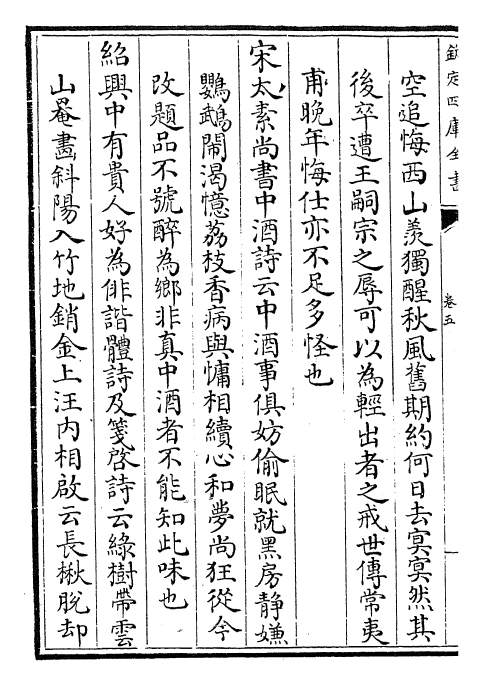 欽定四庫全書
卷五
空追悔西山羨獨醒秋風舊期約何日去㝠㝠然其
後卒遭王嗣宗之辱可以為輕出者之戒世傳常夷
甫晚年悔仕亦不足多怪也
宋太素尚書中酒詩云中酒事俱妨偷眠就黑房静嫌
鸚鵡鬧渴憶荔枝香病與慵相續心和夢尚狂從今
改題品不號醉為鄉非真中酒者不能知此味也
紹興中有貴人好為俳諧體詩及箋啓詩云綠樹帶雲
山罨畫斜陽入竹地銷金上汪内相啟云長楸脫却